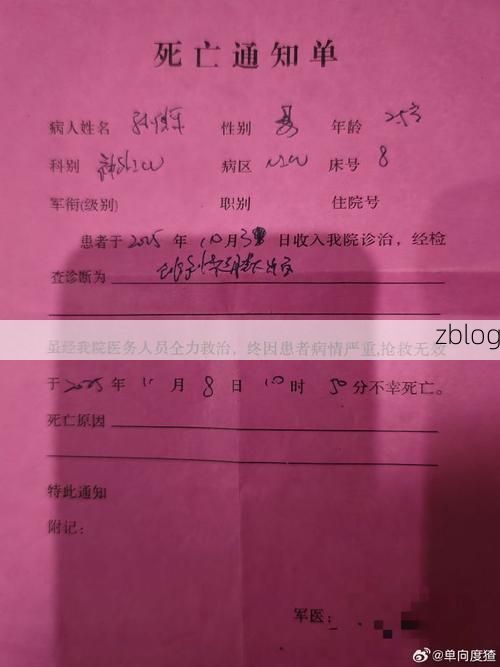 死亡通知单
病人姓名 性别 男 年龄 25岁
科别 神外ICU 病区 NICU 床号 8
军衔(级别) 职别 住院号
患者于 2025 年 10 月 日收入我院诊治，经检
查诊断为
zblog
虽经我院医务人员全力救治，终因患者病情严重,抢救无效
于 2025 年 11 月 8 日 10 时 50 分不幸死亡。
死亡原因
特此通知
附记：
军医：
@单向度猹